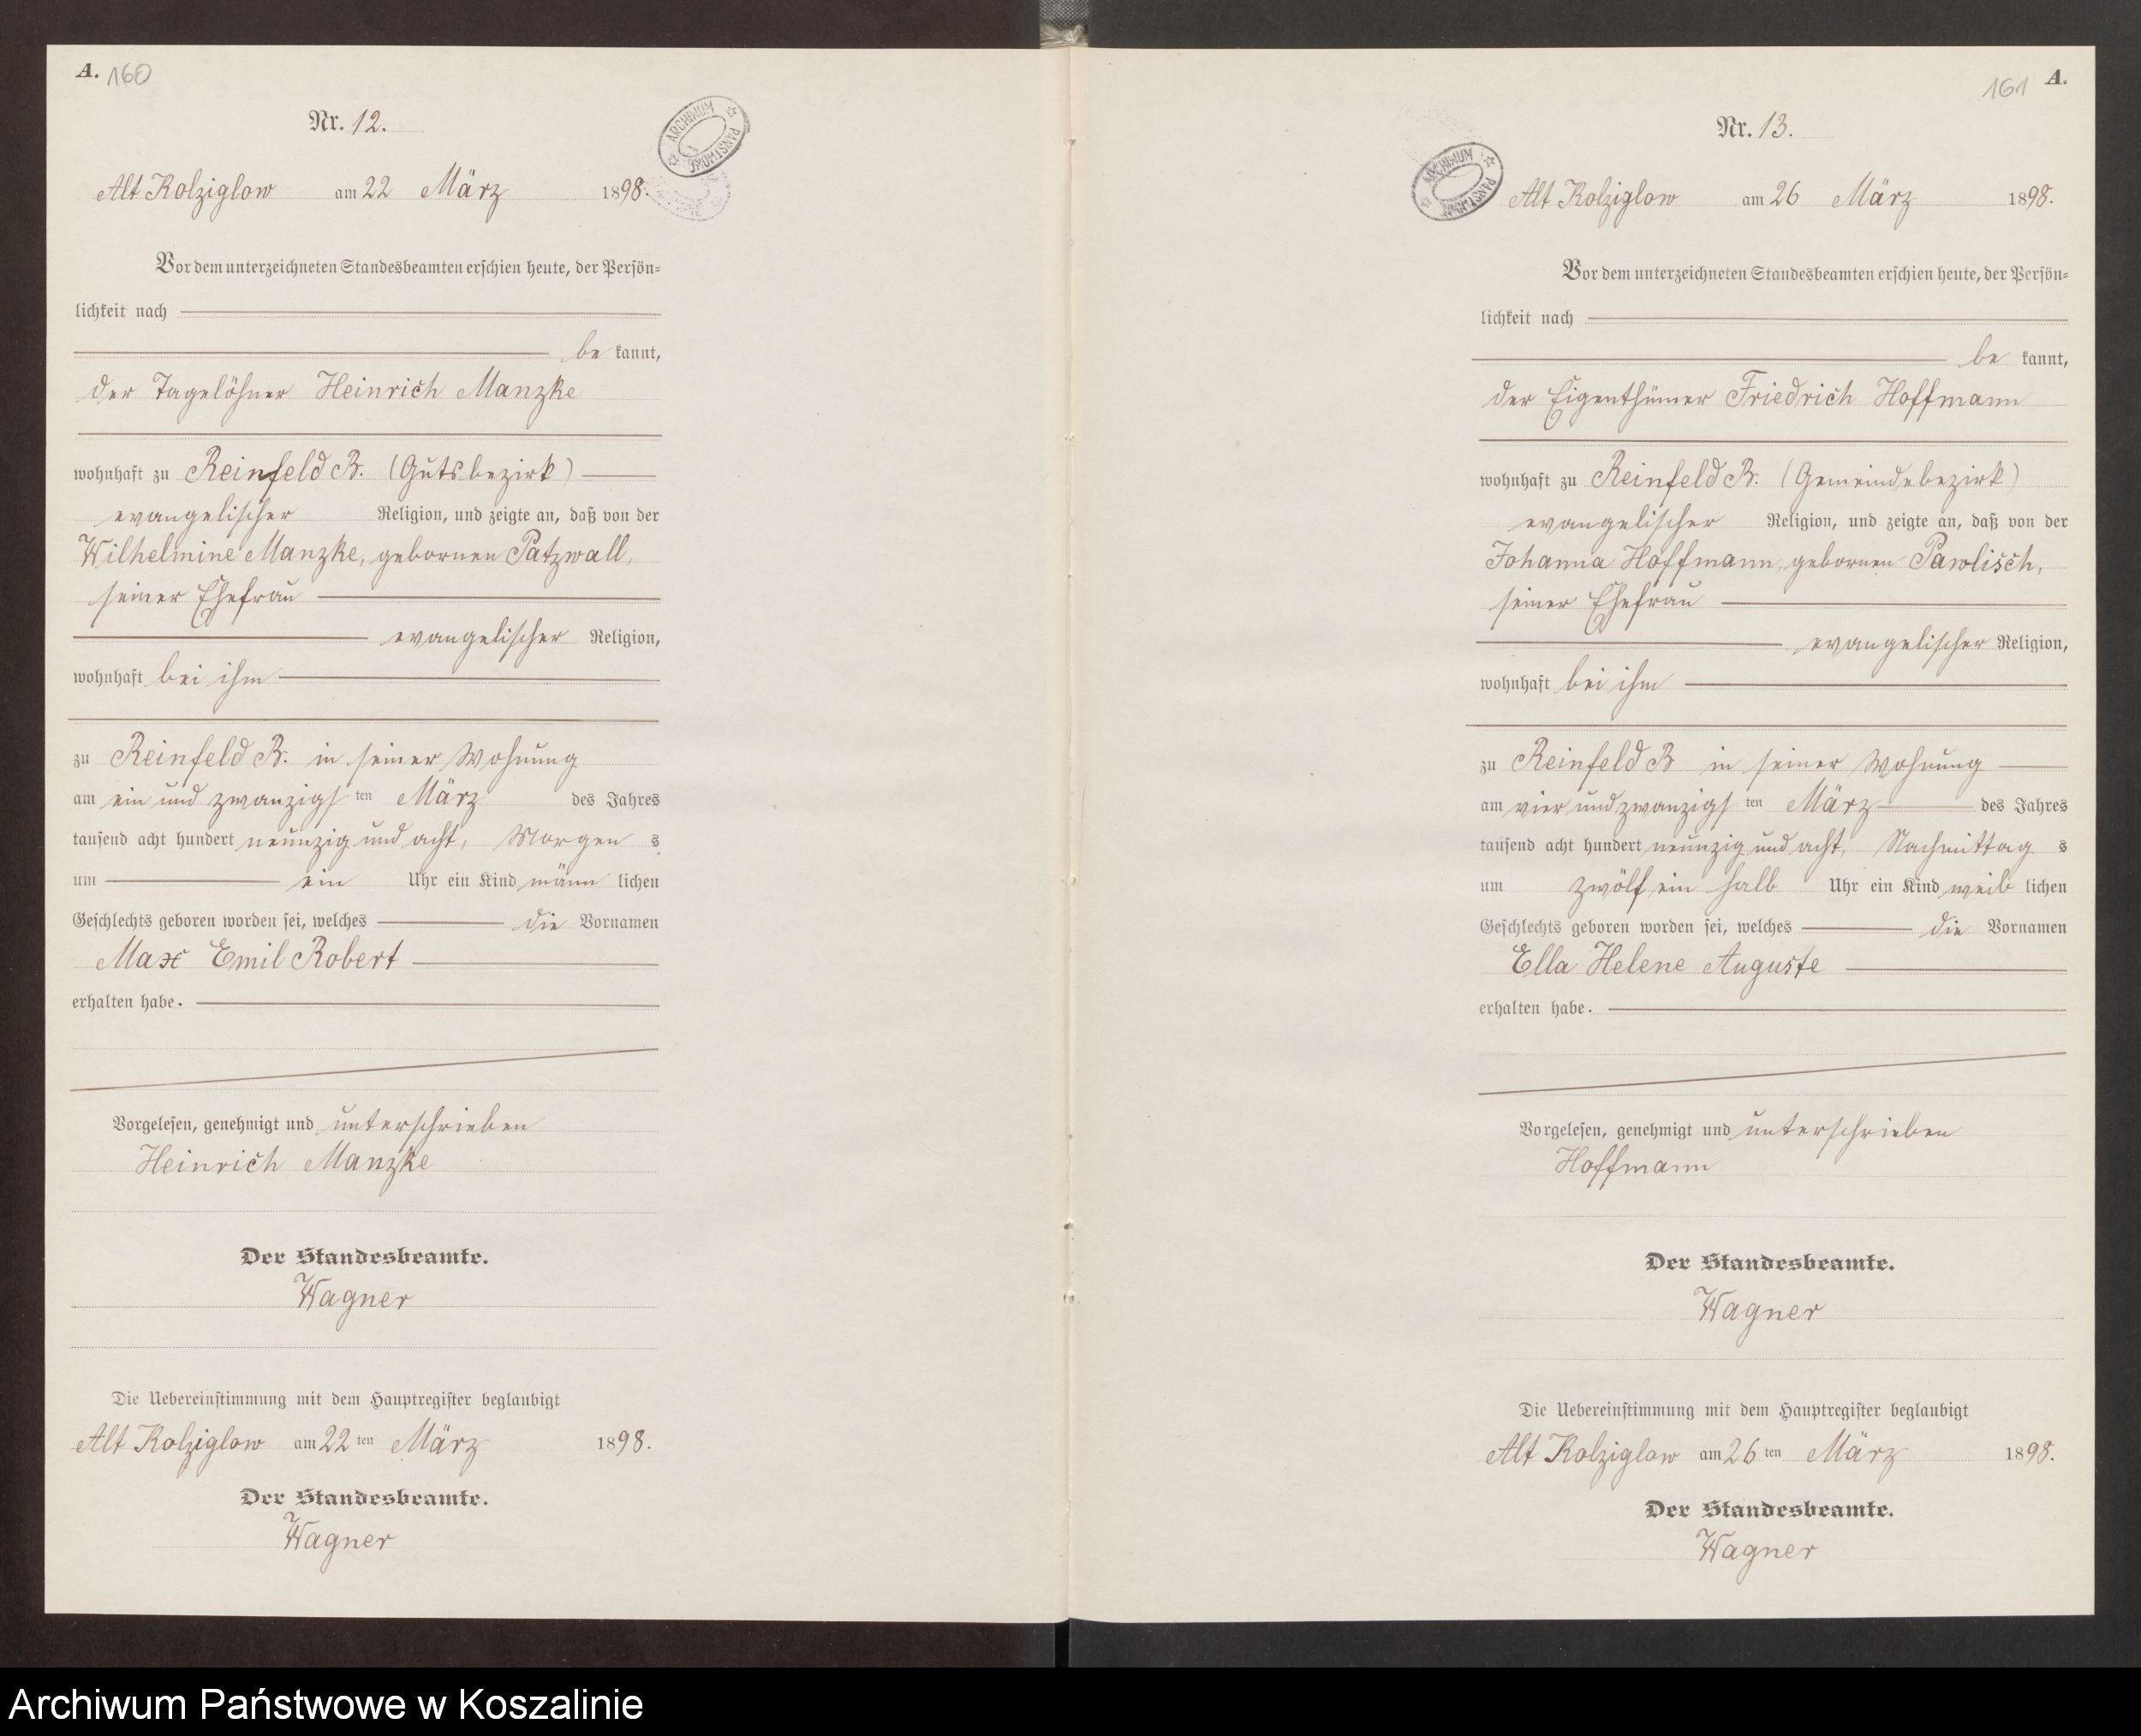 A. 160
Nr. 12.
ARCHIWUM PAŃSTWOWE
Alt Kolziglow am 22 März 1898.
Vor dem unterzeichneten Standesbeamten erschien heute, der Persön=
lichkeit nach
be kannt,
der Tagelöhner Heinrich Manzke
wohnhaft zu Reinfeld B. (Gutsbezirk)
evangelischer Religion, und zeigte an, daß von der
Wilhelmine Manzke, gebornen Patzwall,
seiner Ehefrau
evangelischer Religion,
wohnhaft bei ihm
zu Reinfeld B. in seiner Wohnung
am ein und zwanzigs ten März des Jahres
tausend acht hundert neunzig und acht, Morgen s
um ein Uhr ein Kind männ lichen
Geschlechts geboren worden sei, welches die Vornamen
Max Emil Robert
erhalten habe.
Vorgelesen, genehmigt und unterschrieben
Heinrich Manzke
Der Standesbeamte.
Wagner
Die Uebereinstimmung mit dem Hauptregister beglaubigt
Alt Kolziglow am 22 ten März 1898.
Der Standesbeamte.
Wagner
161 A.
Nr. 13.
ARCHIWUM PAŃSTWOWE
Alt Kolziglow am 26 März 1898.
Vor dem unterzeichneten Standesbeamten erschien heute, der Persön=
lichkeit nach
be kannt,
der Eigenthümer Friedrich Hoffmann
wohnhaft zu Reinfeld B. (Gemeindebezirk)
evangelischer Religion, und zeigte an, daß von der
Johanna Hoffmann, gebornen Pawlisch,
seiner Ehefrau
evangelischer Religion,
wohnhaft bei ihm
zu Reinfeld B in seiner Wohnung
am vier und zwanzigs ten März des Jahres
tausend acht hundert neunzig und acht, Nachmittag s
um zwölf ein halb Uhr ein Kind weib lichen
Geschlechts geboren worden sei, welches die Vornamen
Ella Helene Auguste
erhalten habe.
Vorgelesen, genehmigt und unterschrieben
Hoffmann
Der Standesbeamte.
Wagner
Die Uebereinstimmung mit dem Hauptregister beglaubigt
Alt Kolziglow am 26 ten März 1898.
Der Standesbeamte.
Wagner
Archiwum Państwowe w Koszalinie